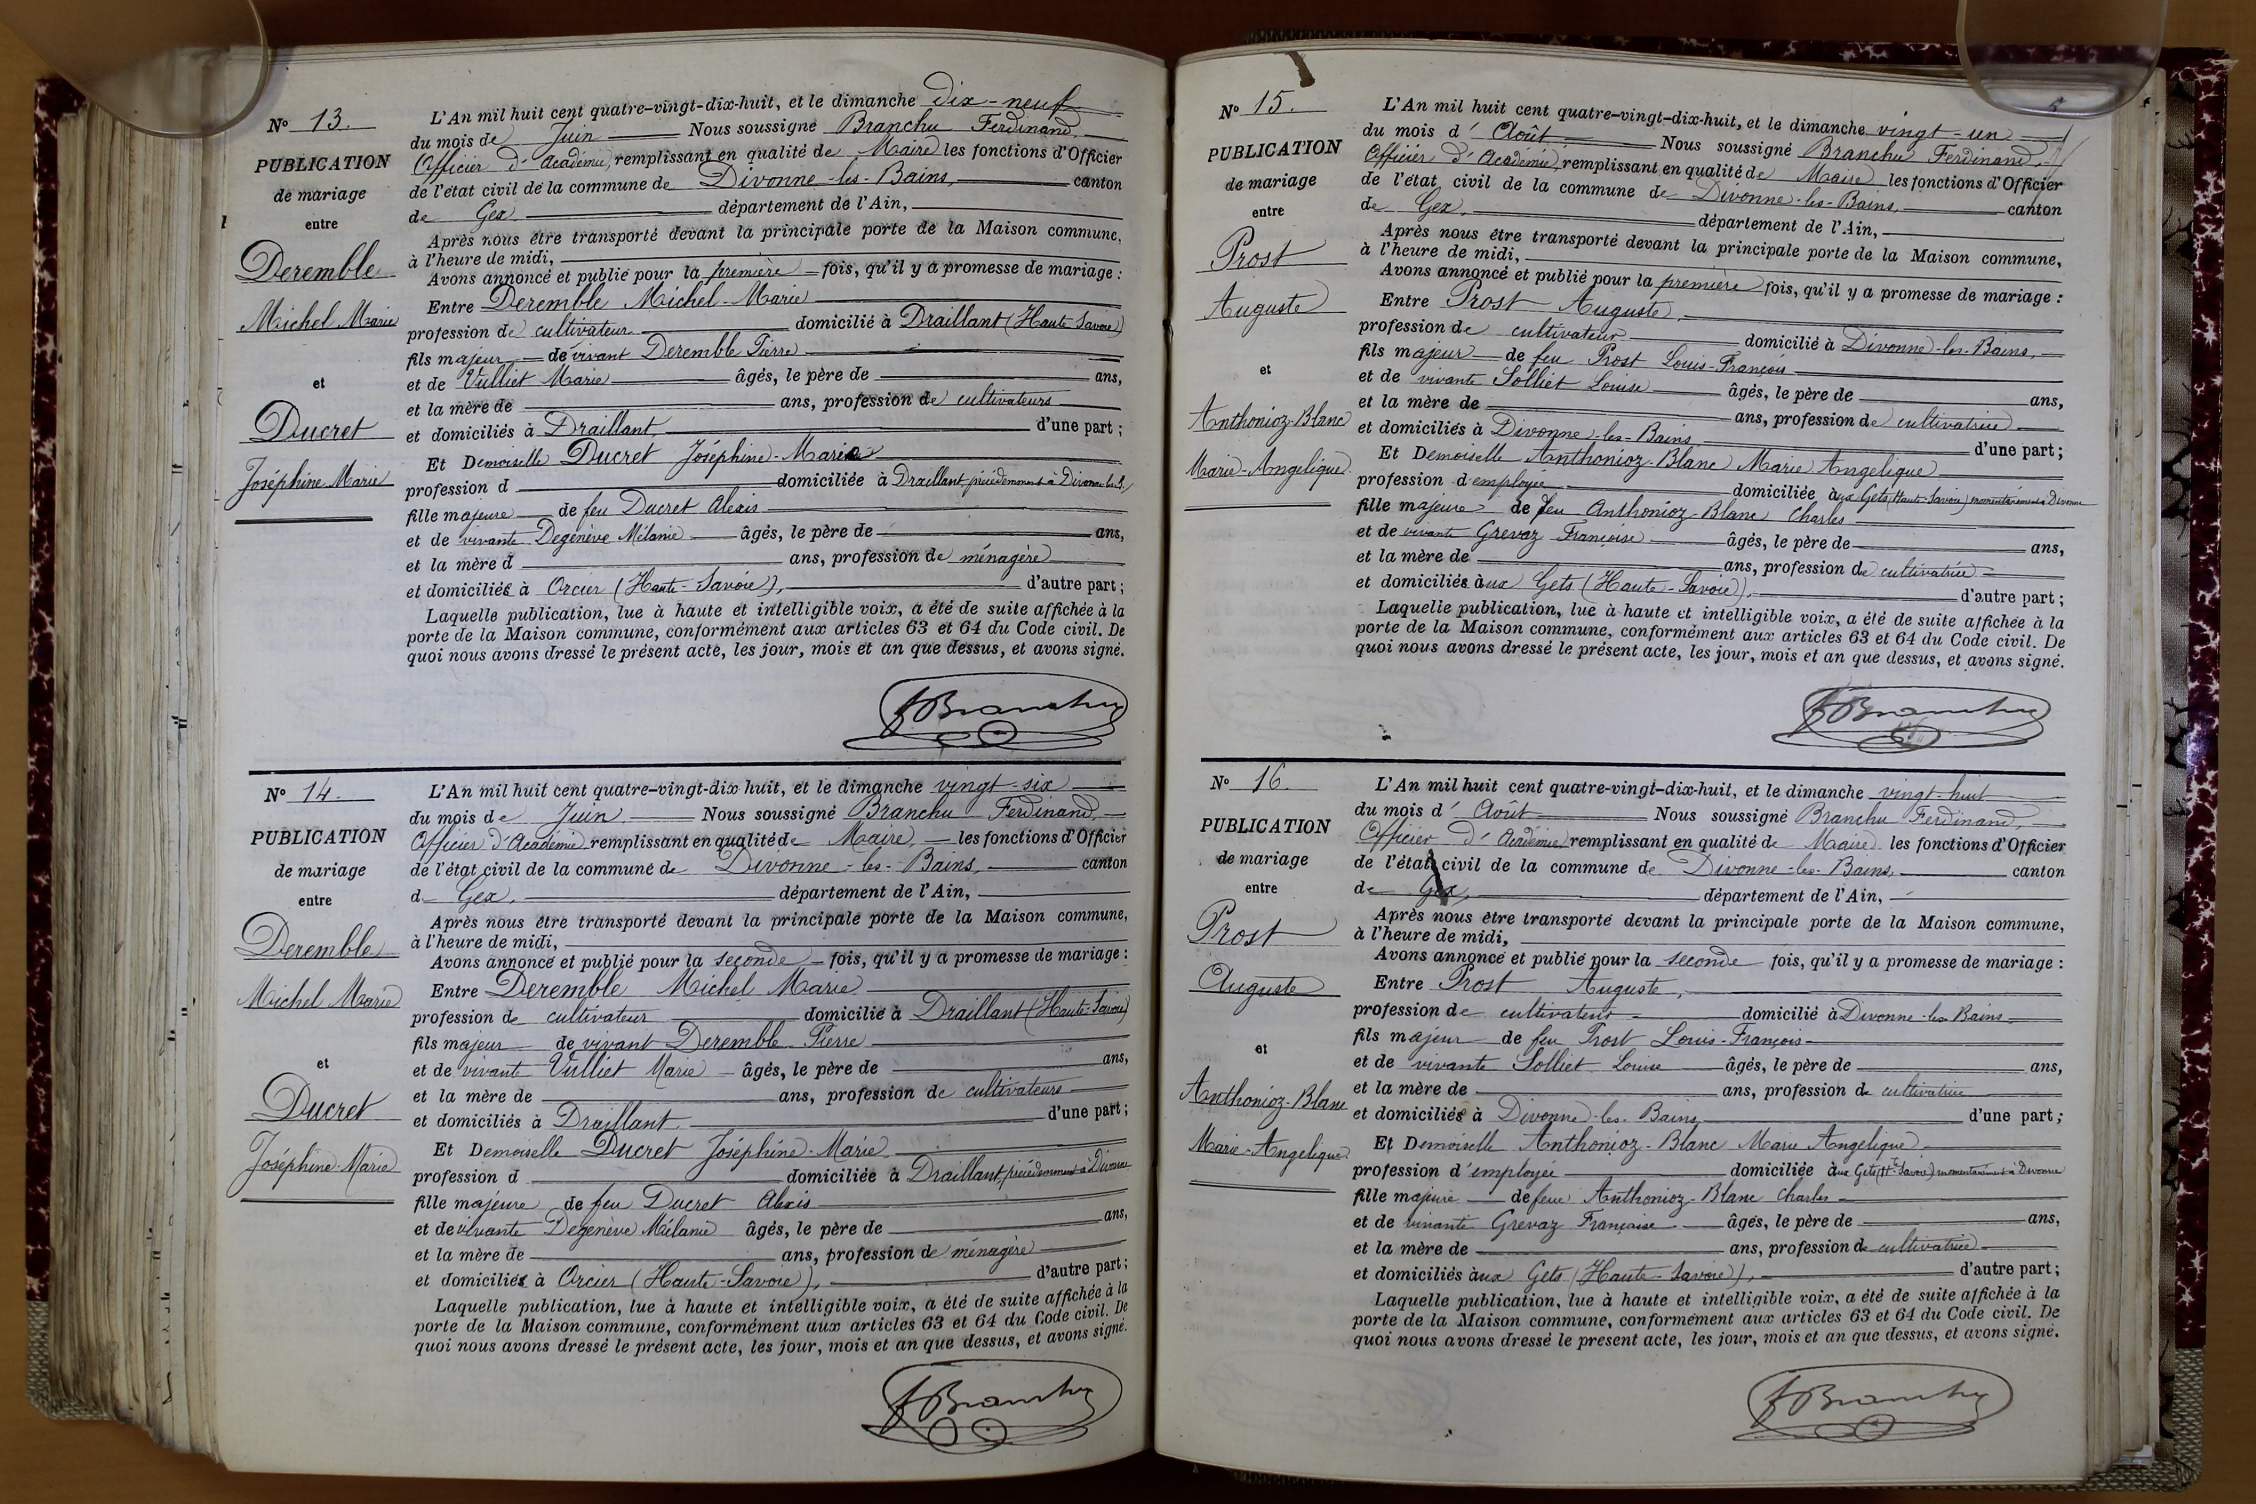 N° 13.
PUBLICATION
de mariage
entre
Deremble
Michel Marie
et
Ducret
Joséphine Marie
L'An mil huit cent quatre-vingt-dix-huit, et le dimanche dix-neuf
du mois de Juin Nous soussigné Branchu Ferdinand,
Officier d'Académie, remplissant en qualité de Maire les fonctions d'Officier
de l'état civil de la commune de Divonne-les-Bains, canton
de Gex, département de l'Ain,
Après nous être transporté devant la principale porte de la Maison commune,
à l'heure de midi,
Avons annoncé et publié pour la première fois, qu'il y a promesse de mariage :
Entre Deremble Michel-Marie
profession de cultivateur domicilié à Draillant (Haute Savoie)
fils majeur de vivant Deremble Pierre
et de Vulliet Marie âgés, le père de ans,
et la mère de ans, profession de cultivateurs
et domiciliés à Draillant, d'une part ;
Et Demoiselle Ducret Joséphine-Marie
profession d domiciliée à Draillant, précédemment à Divonne les B.,
fille majeure de feu Ducret Alexis
et de vivante Degenève Mélanie âgés, le père de ans,
et la mère d ans, profession de ménagère
et domiciliés à Orcier (Haute-Savoie), d'autre part ;
Laquelle publication, lue à haute et intelligible voix, a été de suite affichée à la
porte de la Maison commune, conformément aux articles 63 et 64 du Code civil. De
quoi nous avons dressé le présent acte, les jour, mois et an que dessus, et avons signé.
FBranchu
N° 14.
PUBLICATION
de mariage
entre
Deremble
Michel Marie
et
Ducret
Joséphine-Marie
L'An mil huit cent quatre-vingt-dix huit, et le dimanche vingt-six
du mois de Juin Nous soussigné Branchu Ferdinand,
Officier d'Académie remplissant en qualité de Maire, les fonctions d'Officier
de l'état civil de la commune de Divonne-les-Bains, canton
de Gex, département de l'Ain,
Après nous être transporté devant la principale porte de la Maison commune,
à l'heure de midi,
Avons annoncé et publié pour la seconde fois, qu'il y a promesse de mariage :
Entre Deremble Michel Marie
profession de cultivateur domicilié à Draillant (Haute-Savoie)
fils majeur de vivant Deremble Pierre
et de vivante Vulliet Marie âgés, le père de ans,
et la mère de ans, profession de cultivateurs
et domiciliés à Draillant, d'une part ;
Et Demoiselle Ducret Joséphine-Marie
profession d domiciliée à Draillant, précédemment à Divonne
fille majeure de feu Ducret Alexis
et de vivante Degenève Mélanie âgés, le père de ans,
et la mère de ans, profession de ménagère
et domiciliés à Orcier (Haute-Savoie), d'autre part ;
Laquelle publication, lue à haute et intelligible voix, a été de suite affichée à la
porte de la Maison commune, conformément aux articles 63 et 64 du Code civil. De
quoi nous avons dressé le présent acte, les jour, mois et an que dessus, et avons signé.
FBranchu
N° 15.
PUBLICATION
de mariage
entre
Prost
Auguste
et
Anthonioz-Blanc
Marie-Angelique
L'An mil huit cent quatre-vingt-dix-huit, et le dimanche vingt-un
du mois d'Août Nous soussigné Branchu Ferdinand,
Officier d'Académie, remplissant en qualité de Maire les fonctions d'Officier
de l'état civil de la commune de Divonne-les-Bains, canton
de Gex, département de l'Ain,
Après nous être transporté devant la principale porte de la Maison commune,
à l'heure de midi,
Avons annoncé et publié pour la première fois, qu'il y a promesse de mariage :
Entre Prost Auguste,
profession de cultivateur domicilié à Divonne-les-Bains,
fils majeur de feu Prost Louis-François
et de vivante Solliet Louise âgés, le père de ans,
et la mère de ans, profession de cultivatrice
et domiciliés à Divonne-les-Bains d'une part ;
Et Demoiselle Anthonioz-Blanc Marie Angelique
profession d'employée domiciliée aux Gets (Haute-Savoie) momentanément à Divonne
fille majeure de feu Anthonioz-Blanc Charles
et de vivante Grevaz Françoise âgés, le père de ans,
et la mère de ans, profession de cultivatrice
et domiciliés aux Gets (Haute-Savoie), d'autre part ;
Laquelle publication, lue à haute et intelligible voix, a été de suite affichée à la
porte de la Maison commune, conformément aux articles 63 et 64 du Code civil. De
quoi nous avons dressé le présent acte, les jour, mois et an que dessus, et avons signé.
FBranchu
N° 16.
PUBLICATION
de mariage
entre
Prost
Auguste
et
Anthonioz-Blanc
Marie-Angelique
L'An mil huit cent quatre-vingt-dix-huit, et le dimanche vingt-huit
du mois d'Août Nous soussigné Branchu Ferdinand,
Officier d'Académie remplissant en qualité de Maire les fonctions d'Officier
de l'état civil de la commune de Divonne-les-Bains, canton
de Gex, département de l'Ain,
Après nous être transporté devant la principale porte de la Maison commune,
à l'heure de midi,
Avons annoncé et publié pour la seconde fois, qu'il y a promesse de mariage :
Entre Prost Auguste,
profession de cultivateur domicilié à Divonne-les Bains
fils majeur de feu Prost Louis-François
et de vivante Solliet Louise âgés, le père de ans,
et la mère de ans, profession de cultivatrice
et domiciliés à Divonne-les-Bains, d'une part ;
Et Demoiselle Anthonioz-Blanc Marie Angelique
profession d'employée domiciliée aux Gets (Hte Savoie) momentanément à Divonne
fille majeure de feu Anthonioz-Blanc Charles
et de vivante Grevaz Françoise âgés, le père de ans,
et la mère de ans, profession de cultivatrice
et domiciliés aux Gets (Haute-Savoie), d'autre part ;
Laquelle publication, lue à haute et intelligible voix, a été de suite affichée à la
porte de la Maison commune, conformément aux articles 63 et 64 du Code civil. De
quoi nous avons dressé le présent acte, les jour, mois et an que dessus, et avons signé.
FBranchu